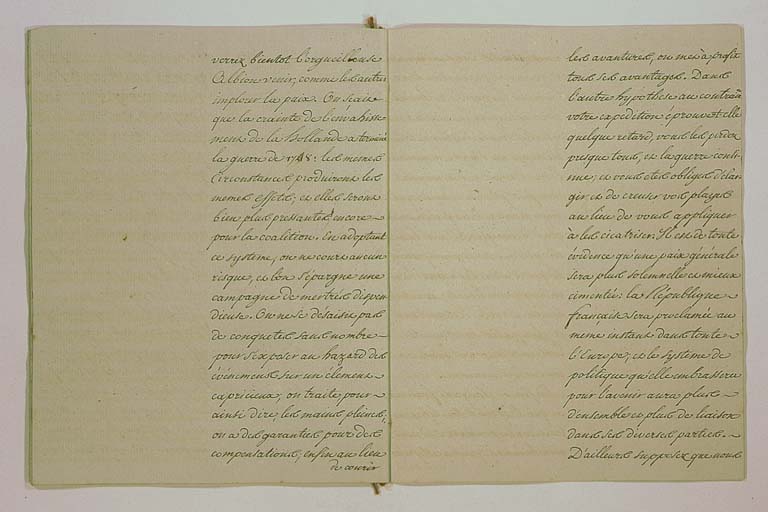 verrez bientot l'orgueilleuse
Albion venir, comme les autres
implorer la paix. On scait
que la crainte de l'envahisse
ment de la Hollande a terminé
la guerre de 1748: les memes
circonstances produiront les
memes effets; et elles seront
bien plus pressantes encore
pour la coalition. En adoptant
ce système, on ne court aucun
risque, et l'on s'épargne une
campagne de mer très dispen
dieuse. On ne se désaisit pas
de conquetes sans nombre
pour s'exposer au hazard des
événemens sur un élement
capricieux; on traite, pour
ainsi dire, les mains pleines;
on a des garanties pour des
compensations; enfin au lieu
de courir
les avantures, on met à profit
tous ses avantages. Dans
l'autre hypothese au contraire
votre expédition eprouvat-elle
quelque retard, vous les perdez
presque tous, et la guerre conti-
nue; et vous etes obligés d'élar
gir et de creuser vos playes
au lieu de vous appliquer
à les cicatriser. Il est de toute
évidence qu'une paix générale
sera plus solemnelle et mieux
cimentée: la République
française sera proclamée au
meme instant dans toute
l'Europe, et le système de
politique qu'elle embrassera
pour l'avenir aura plus
d'ensemble et plus de liaison
dans ses diverses parties.
D'ailleurs supposez que nous